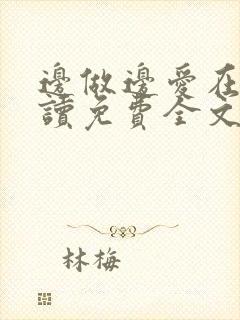 邊做邊愛在
讀免費全文
林梅